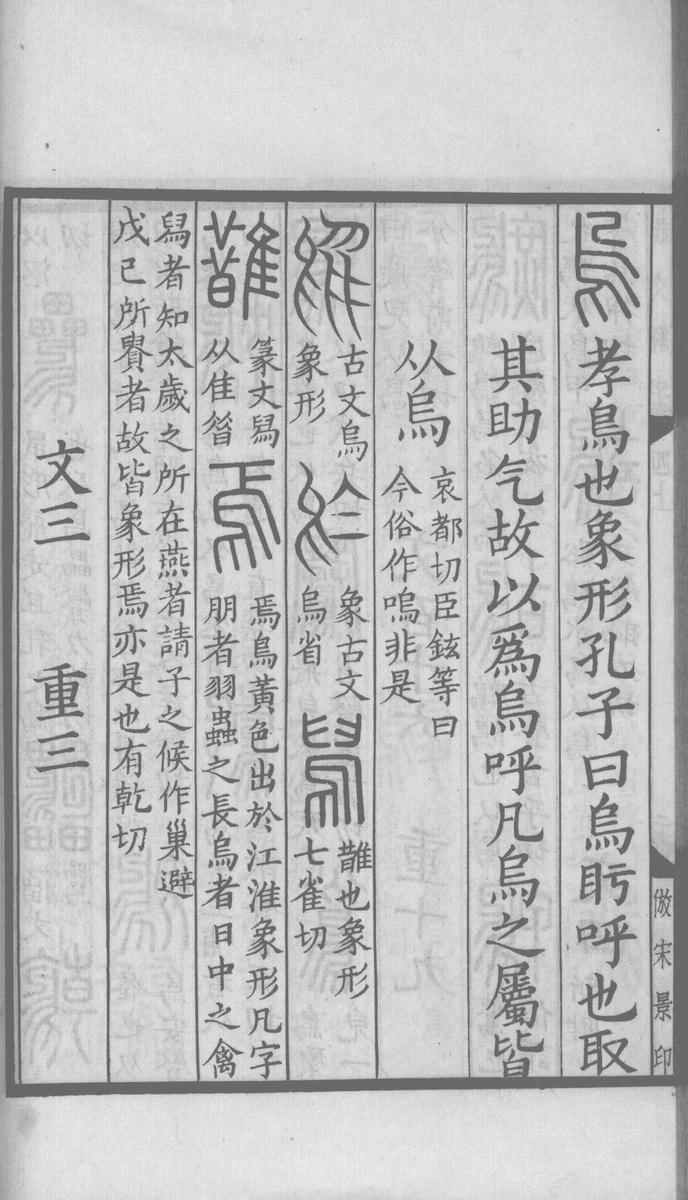 烏孝鳥也象形孔子曰烏盱呼也取
其助气故以爲烏呼凡烏之屬皆
从烏
哀都切臣鉉等曰
今俗作嗚非是
古文烏
象形
象古文
烏省
舄
䧿也象形
七雀切
䧿
篆文舄
从隹昔
焉
焉鳥黃色出於江淮象形凡字
朋者羽蟲之長烏者日中之禽
舄者知太歲之所在燕者請子之候作巢避
戊己所貴者故皆象形焉亦是也有乾切
文三 重三
倣宋景印